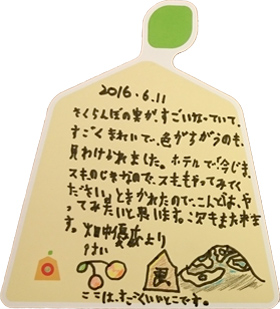 2016.6.11
さくらんぼの実が、すごいなっていて、
すごくきれいで、色がちがうのも、
見わけられました。ホテルで「今じき、
スモのじきなので、スモもやってみてく
ださい。」ときかれたので、こんどは、や
ってみたいと思います。次もまた来ま
す。 より
ここは、すごくいいとこです。